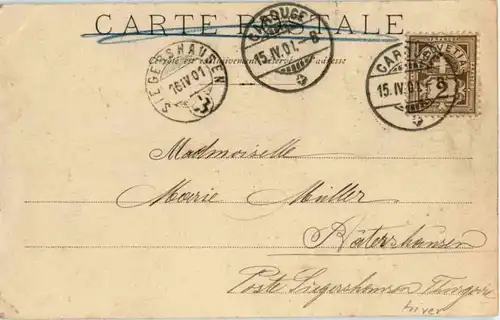 CARTE POSTALE
CAROUGE
15.IV.01.-8
SIEGERSHAUSEN
16.IV.01
Côté est exclusivement adresse
CAROUGE
15.IV.01.
HELVETIA
2
Mademoiselle
Marie Müller
Rätershausen
Poste Siegershausen Thurgovie
hiver